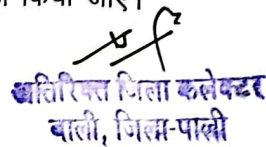 किया जाए।
अतिरिक्त जिला कलेक्टर
बाली, जिला-पाली